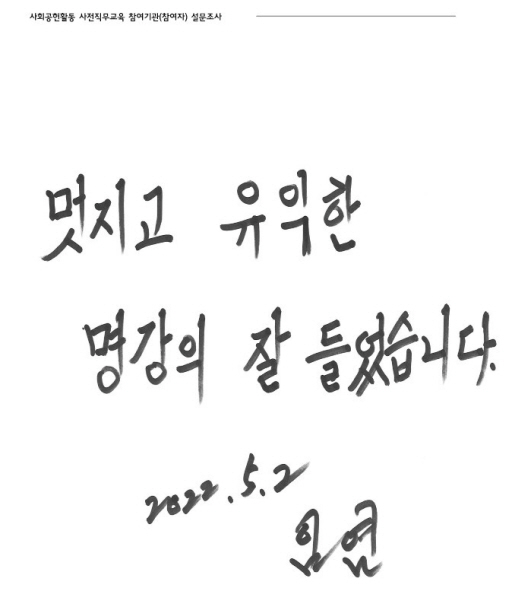 사회공헌활동 사전직무교육 참여기관(참여자) 설문조사
멋지고 유익한
명강의 잘 들었습니다.
2022.5.2